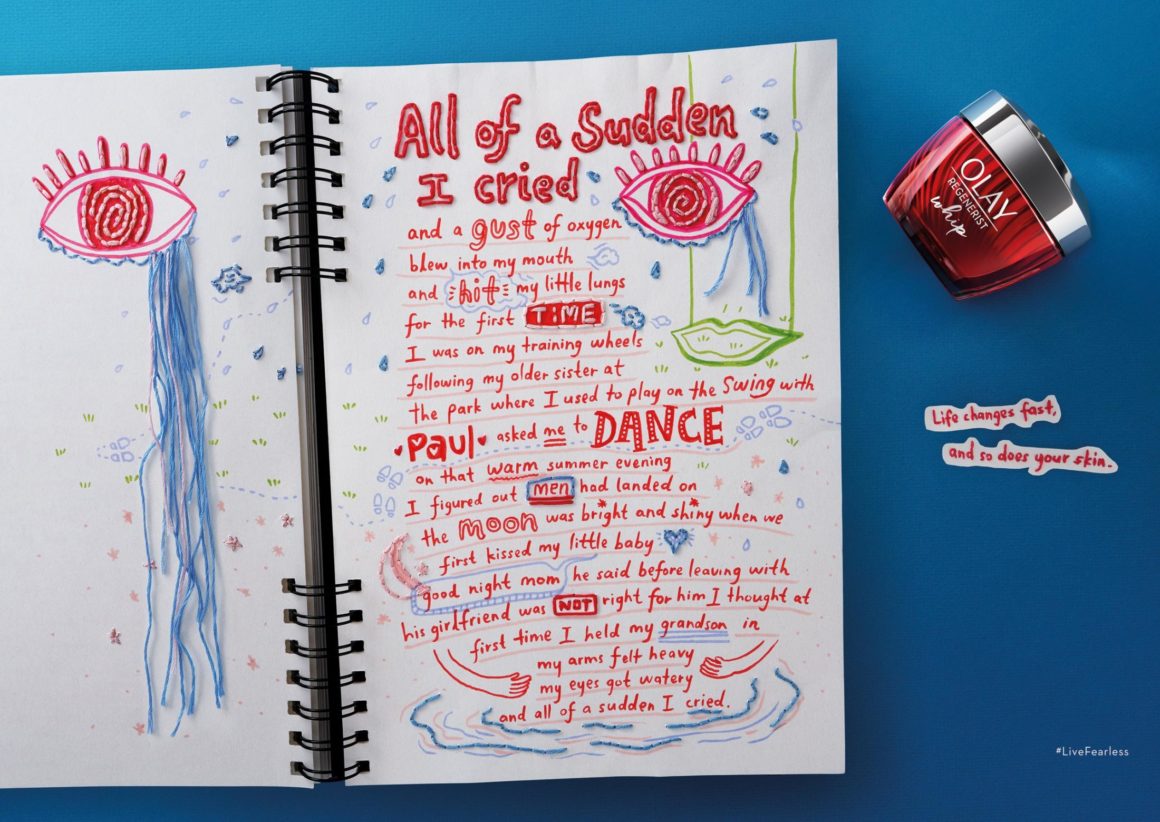 All of a Sudden
I cried
and a gust of oxygen
blew into my mouth
and hit my little lungs
for the first TiME
I was on my training wheels
following my older sister at
the park where I used to play on the Swing with
Paul asked me to DANCE
on that warm summer evening
I figured out men had landed on
the moon was bright and shiny when we
first kissed my little baby
good night mom he said before leaving with
his girlfriend was NOT right for him I thought at
first time I held my grandson in
my arms felt heavy
my eyes got watery
and all of a sudden I cried.
OLAY
REGENERIST
whip
Life changes fast,
and so does your skin.
#LiveFearless